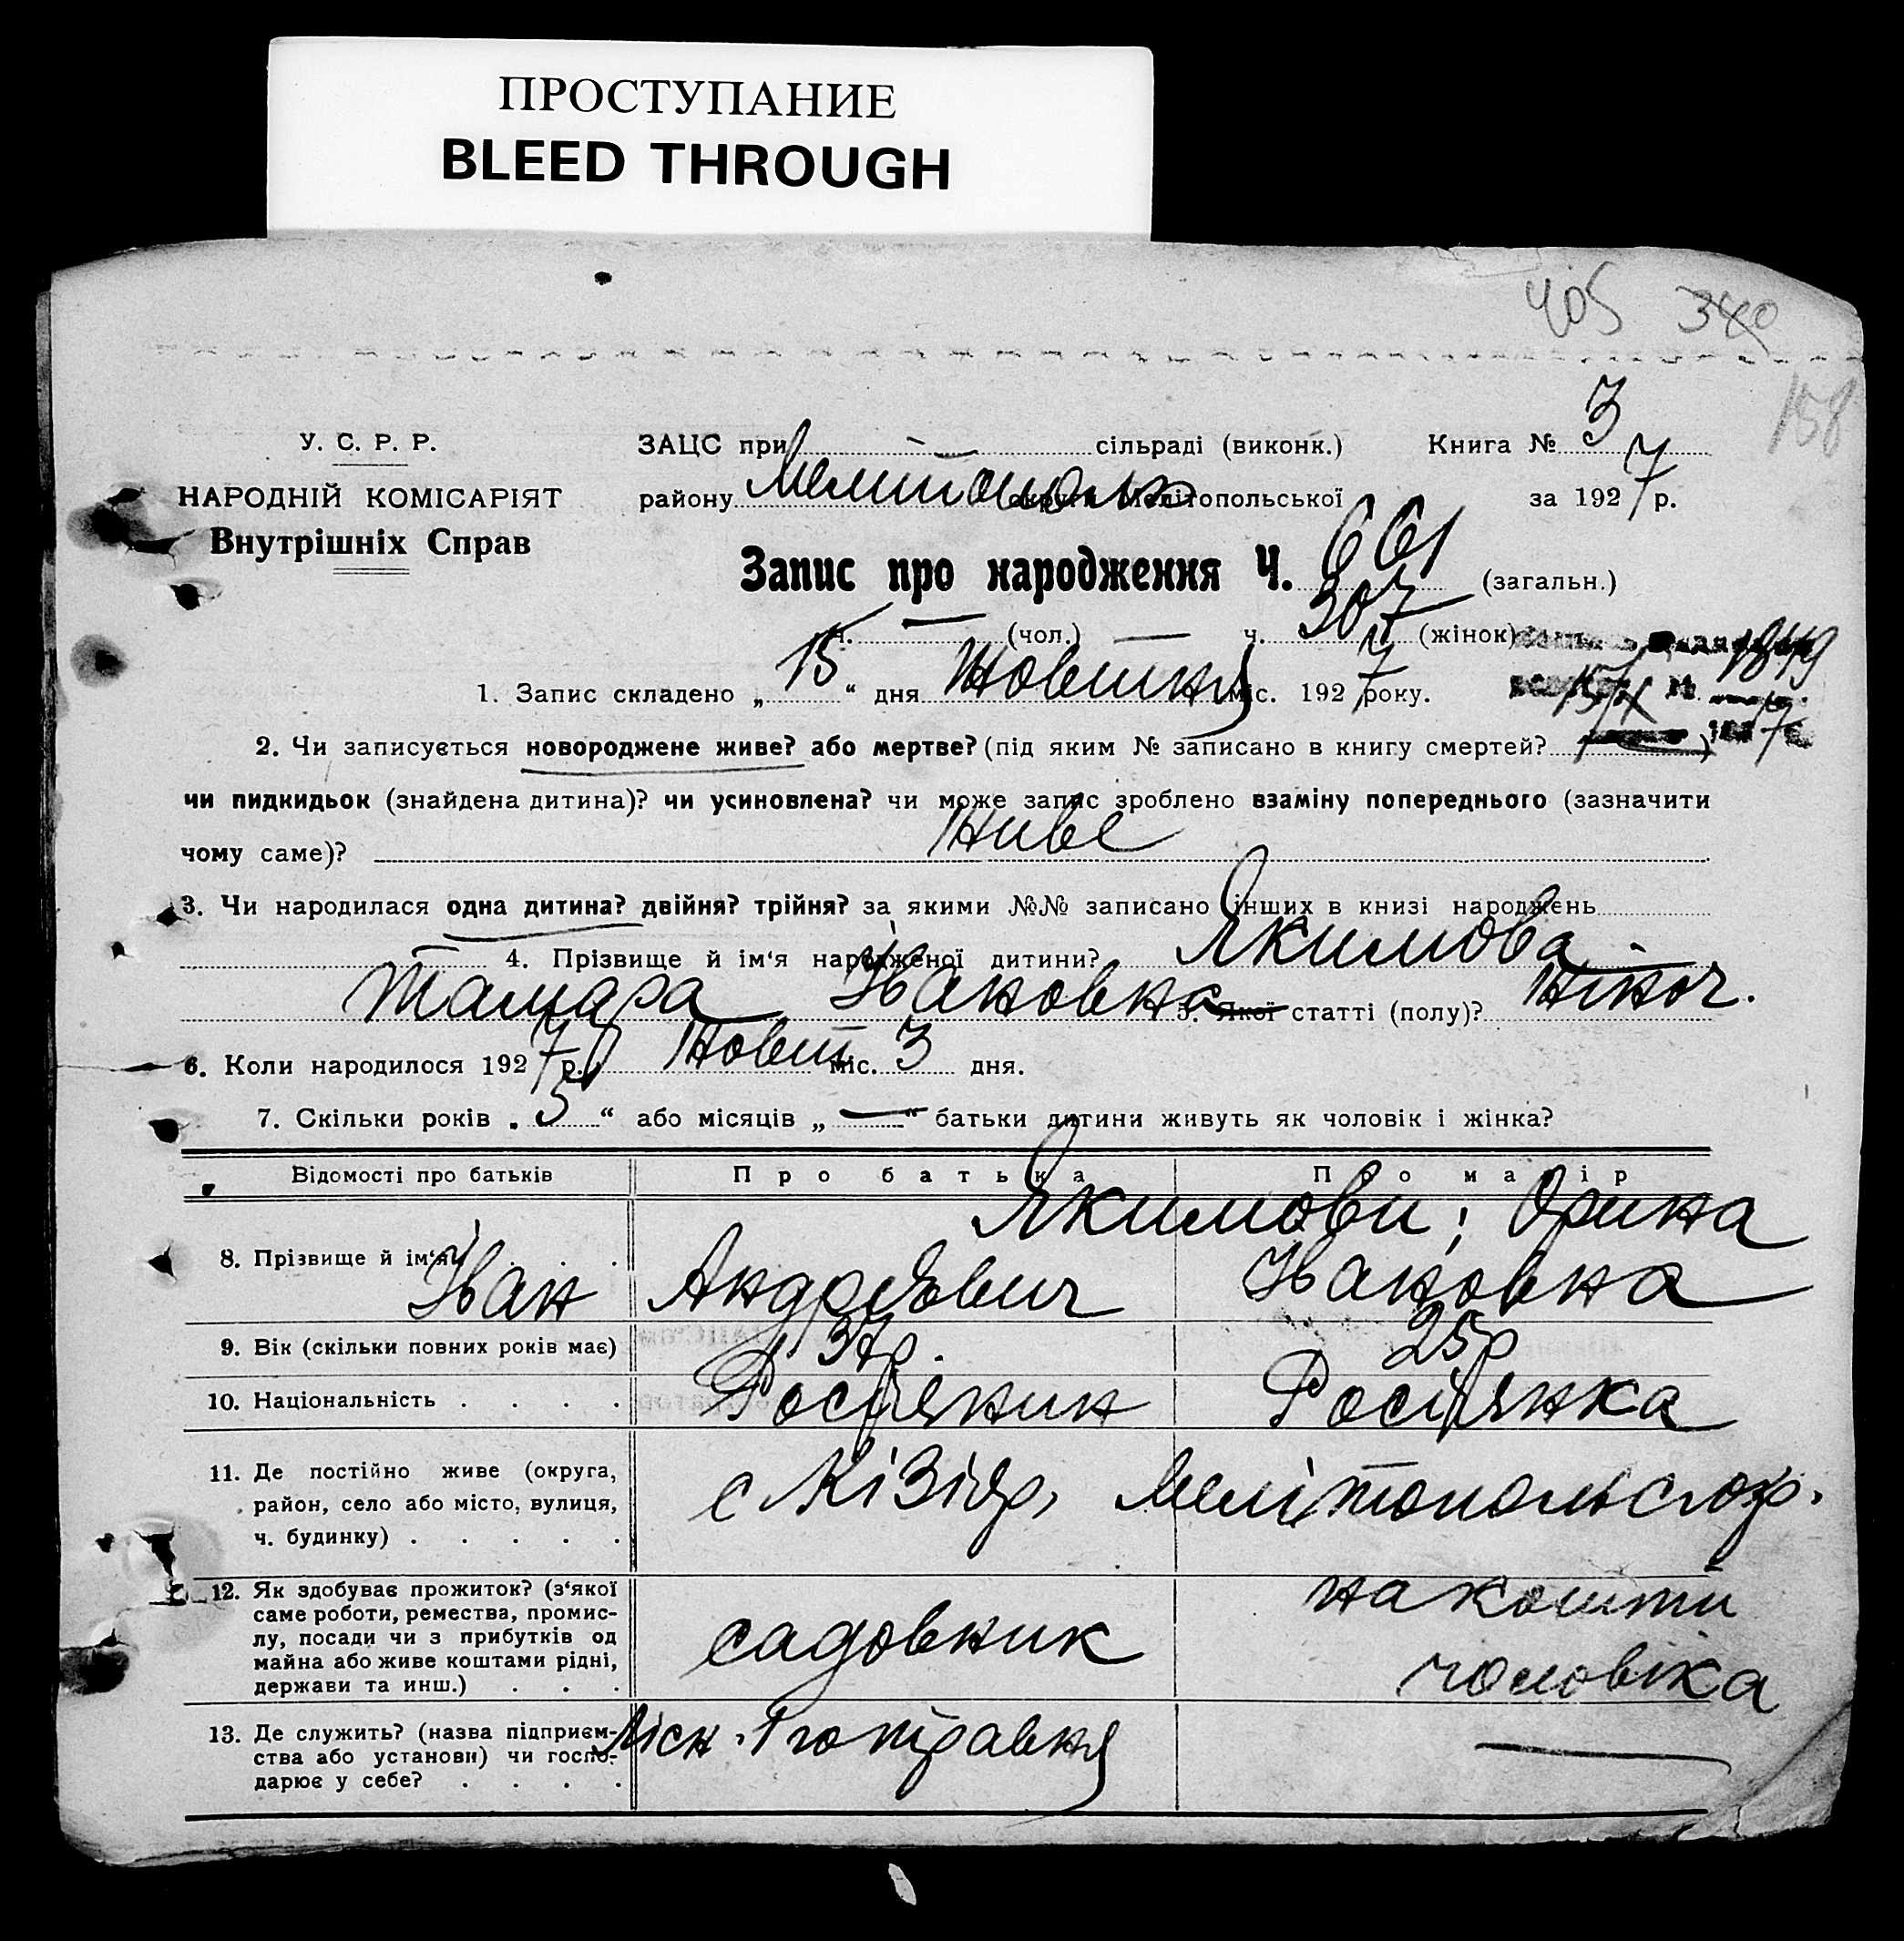 ПРОСТУПАНИЕ
BLEED THROUGH
405 340
158
У. С. Р. Р.
НАРОДНІЙ КОМІСАРІЯТ
Внутрішніх Справ
ЗАЦС при сільраді (виконк.) Книга № 3
району Мелітополь округи Мелітопольської за 1927 р.
Запис про народження Ч. 661 (загальн.)
ч. — (чол.) — ч. 307 (жінок)
1849
1. Запис складено „15“ дня Жовтня міс. 1927 року.
2. Чи записується новороджене живе? або мертве? (під яким № записано в книгу смертей? )
чи пидкидьок (знайдена дитина)? чи усиновлена? чи може запис зроблено взаміну попереднього (зазначити
чому саме)? Живе
3. Чи народилася одна дитина? двійня? трійня? за якими №№ записано інших в книзі народжень
4. Прізвище й ім‘я народженої дитини? Якимова
Тамара Івановна 5. Якої статті (полу)? Жіноч.
6. Коли народилося 1927 р. Жовт міс. 3 дня.
7. Скільки років „5“ або місяців „—“ батьки дитини живуть як чоловік і жінка?
Відомості про батьків Про батька Про матір
Якимови; Орина
8. Прізвище й ім‘я Іван Андрієвич Івановна
9. Вік (скільки повних років має) 37р. 25р
10. Національність . . . . Росіянин Росіянка
11. Де постійно живе (округа,
район, село або місто, вулиця,
ч. будинку) . . . . .
с Кізіяр, Мелітопольс окр.
12. Як здобуває прожиток? (з‘якої
саме роботи, ремества, промис-
лу, посади чи з прибутків од
майна або живе коштами рідні,
держави та инш.) . . .
садовник
на кошти
чоловіка
13. Де служить? (назва підприєм-
ства або установи) чи госпо-
дарює у себе? . . . .
—